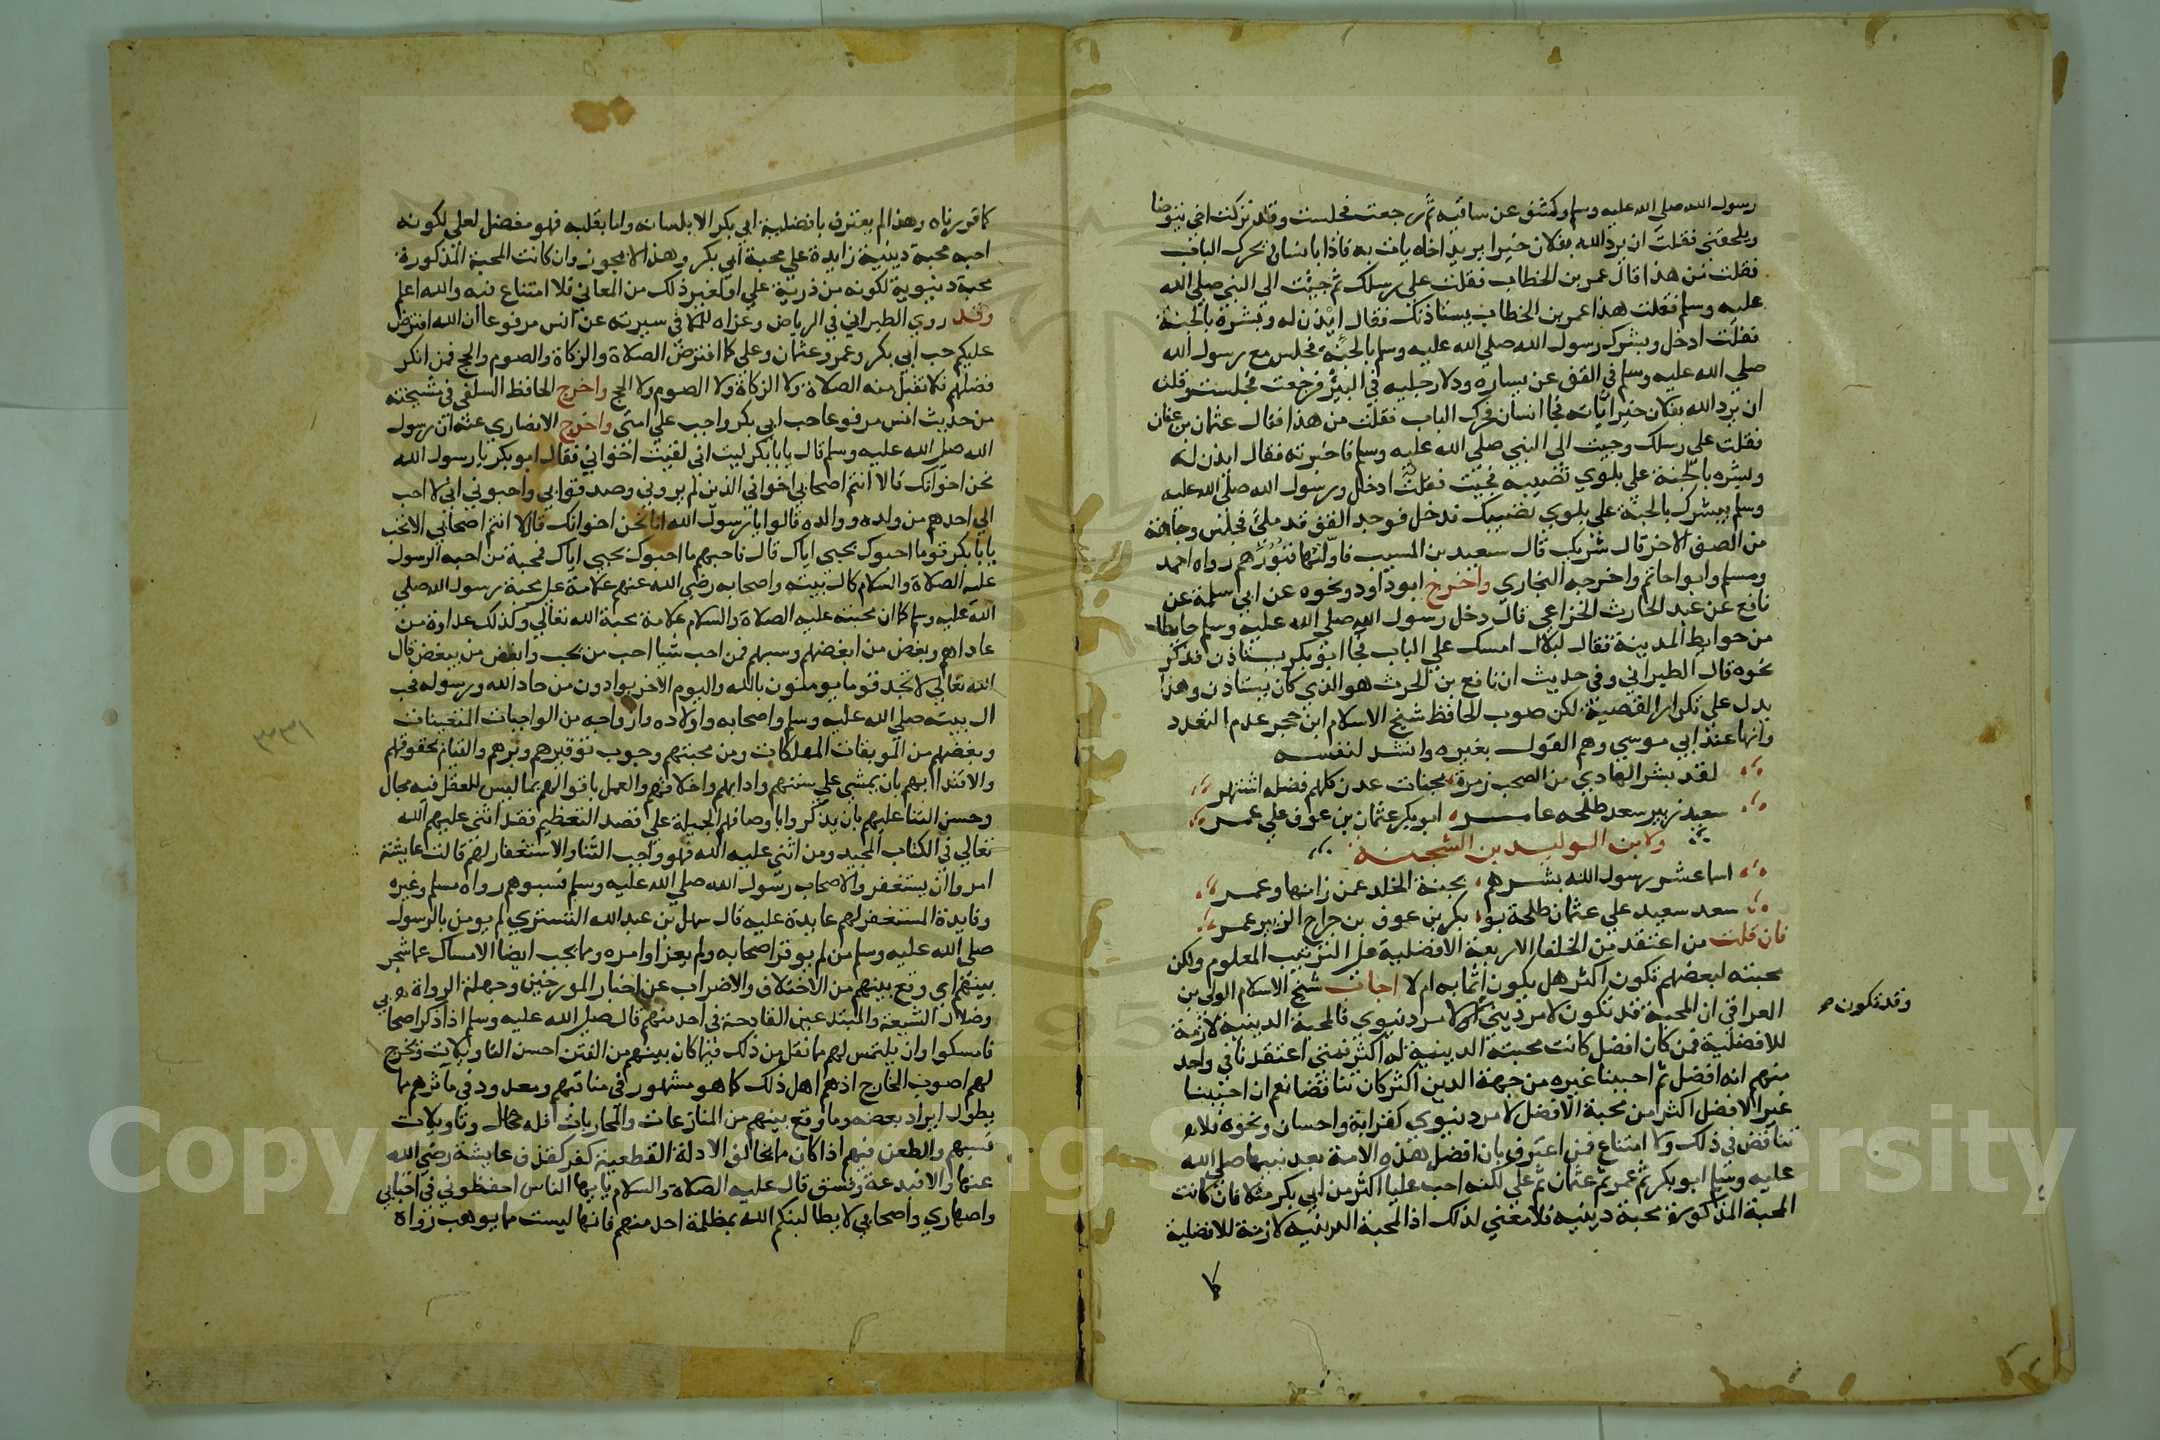 رسول الله صلي الله عليه وسلم وكشف عن ساقيه ثم رجعت فجلست وقد تركت اخي يتوضا
ويلحقني فقلت ان يرد الله بفلان خيرا يريد اخاه يات به فاذا بانسان يحرك الباب
فقلت من هذا قال عمر بن الخطاب فقلت علي رسلك ثم جيت الي النبي صلي الله
عليه وسلم فقلت هذا عمر بن الخطاب يستاذنك فقال ايذن له وبشره بالجنة
فقلت ادخل وبشرك رسول الله صلي الله عليه وسلم بالجنة فجلس مع رسول الله
صلي الله عليه وسلم في القف عن يساره ودلا رجليه في البير فرجعت فجلست وقلت
ان يرد الله بفلان خيرا يات به فجا انسان فحرك الباب فقلت من هذا فقال عثمان بن عفان
فقلت علي رسلك وجيت الي النبي صلي الله عليه وسلم فاخبرته فقال ايذن له
وبشره بالجنة علي بلوي تصيبه فجيت فقلت ادخل ورسول الله صلي الله عليه
وسلم يبشرك بالجنة علي بلوي تصيبك فدخل فوجد القف قد ملي فجلس وجاهه
من الصف الاخر قال شريك قال سعيد بن المسيب فاولتها قبورهم رواه احمد
ومسلم وابو حاتم واخرجه البخاري واخرج ابو داود ونحوه عن ابي سلمة عن
نافع عن عبد الحارث الخزاعي قال دخل رسول الله صلي الله عليه وسلم حايطا
من حوايط المدينة فقال لبلال امسك علي الباب فجا ابو بكر يستاذن فذكر
نحوه قال الطبراني وفي حديث ان نافع بن الحرث هو الذي كان يستاذن وهذا
يدل علي تكرار القصية لكن صوب الحافظ شيخ الاسلام ابن حجر عدم التعدد
وانها عند ابي موسي وهم القول بغيره وانشد لنفسه
لقد بشر الهادي من الصحب زمرة بجنات عدن كلهم فضله اشتهر
سعيد زبير سعد طلحه عامر ابو بكر عثمان بن عوف علي عمر
ولابن الوليد بن الشحنة
اسما عشر رسول الله بشرهم بجنة الخلد عمن زانها وعمر
سعد سعيد علي عثمان طلحة بو بكر بن عوف بن جراح الزبير عمر
فان قلت من اعتقد من الخلفا الاربعة الافضلية علي الترتيب المعلوم ولكن
محبته لبعضهم تكون اكثر هل يكون اثما به ام لا اجاب شيخ الاسلام الولي بن
العراقي ان المحبة قد تكون لامر ديني او لامر دنيوي فالمحبة الدينية لازمة
وقد تكون
للافضلية فمن كان افضل كانت محبته الدينية له اكثر فمتي اعتقدنا في واحد
منهم انه افضل ثم احببنا غيره من جهة الدين اكثر كان تناقضا نعم ان احببنا
غير الافضل اكثر من محبة الافضل لامر دنيوي كقرابة واحسان ونحوه فلا
تناقض في ذلك ولا امتناع فمن اعترف بان افضل هذه الامة بعد نبيها صلي الله
عليه وسلم ابو بكر ثم عمر ثم عثمان ثم علي لكنه احب عليا اكثر من ابي بكر مثلا فان كانت
المحبة المذكورة محبة دينيه فلا معني لذلك اذ المحبة الدينية لازمة للافضلية
كا
كما قررناه وهذا لم يعترف بافضلية ابي بكر الا بلسانه واما بقلبه فهو مفضل لعلي لكونه
احبه محبة دينية زايدة علي محبة ابي بكر وهذا لا يجوز وان كانت المحبة المذكورة
محبة دنيوية لكونه من ذرية علي او لغير ذلك من المعاني فلا امتناع فيه والله اعلم
وقد روي الطبراني في الرياض وعزاه للملا في سيرته عن انس مرفوعا ان الله افترض
عليكم حب ابي بكر وعمر وعثمان وعلي كما افترض الصلاة والزكاة والصوم والحج فمن انكر
فضلهم فلا تقبل منه الصلاة ولا الزكاة ولا الصوم ولا الحج واخرج الحافظ السلفي في مشيخته
من حديث انس مرفوعا حب ابي بكر واجب علي امتي واخرج الانصاري عنه ان رسول
الله صلي الله عليه وسلم قال يابا بكر ليت اني لقيت اخواني فقال ابو بكر يا رسول الله
نحن اخوانك قال لا انتم اصحابي اخواني الذين لم يروني وصدقوا بي واحبوني اني لاحب
الي احدهم من ولده ووالده قالوا يا رسول الله انا نحن اخوانك قال لا انتم اصحابي الا تحب
يابا بكر قوما احبوك بحبي اياك قال فاحبهم ما احبوك بحبي اياك فمحبة من احبه الرسول
عليه الصلاة والسلام كال بيته واصحابه رضي الله عنهم علامة علي محبة رسول الله صلي
الله عليه وسلم كما ان محبته عليه الصلاة والسلام علامة محبة الله تعالي وكذلك عداوة من
عاداهم وبغض من ابغضهم وسبهم فمن احب شيا احب من يحب وابغض من يبغض قال
الله تعالي لا تجد قوما يومنون بالله واليوم الاخر يوادون من حاد الله ورسوله فحب
ال بيته صلي الله عليه وسلم واصحابه واولاده وازواجه من الواجبات المتعينات
وبغضهم من الموبقات المهلكات ومن محبتهم وجوب توقيرهم وبرهم والقيام بحقوقهم
والاقتدا بهم بان يمشي علي سنتهم وادابهم واخلاقهم والعمل باقوالهم مما ليس للعقل فيه مجال
وحسن الثنا عليهم بان يذكروا باوصافهم الجميلة علي قصد التعظيم فقد اثني عليهم الله
تعالي في الكتاب المجيد ومن اثني عليه الله فهو واجب الثنا والاستغفار لهم قالت عايشة
امروا ان يستغفروا لاصحاب رسول الله صلي الله عليه وسلم فسبوهم رواه مسلم وغيره
وفايدة المستغفر لهم عايدة عليه قال سهل بن عبد الله التستري لم يومن بالرسول
صلي الله عليه وسلم من لم يوقر اصحابه ولم يعز اوامره ومما يجب ايضا الامساك عما شجر
بينهم اي وقع بينهم من الاختلاف والاضراب عن اخبار المورخين وجهلة الرواة
وضلال الشيعة والمبتدعين القادحة في احد منهم قال صلي الله عليه وسلم اذا ذكر اصحابي
فامسكوا وان يلتمس لهم ما نقل من ذلك فيما كان بينهم من الفتن احسن التاويلات ويخرج
لهم اصوب المخارج اذ هم اهل ذلك كما هو مشهور في مناقبهم ومعدود في مآثرهم مما
يطول ايراد بعضه وما وقع بينهم من المنازعات والمحاربات فله محال وتاويلات
فسبهم والطعن فيهم اذا كان مما يخالف الادلة القطعية كفر كقذف عايشة رضي الله
عنها والا فبدعة وفسق قال عليه الصلاة والسلام يا يها الناس احفظوني في اختاني
واصهاري واصحابي لا يطالبنكم الله بمظلمة احد منهم فانها ليست مما يوهب رواه
٣٣٣١